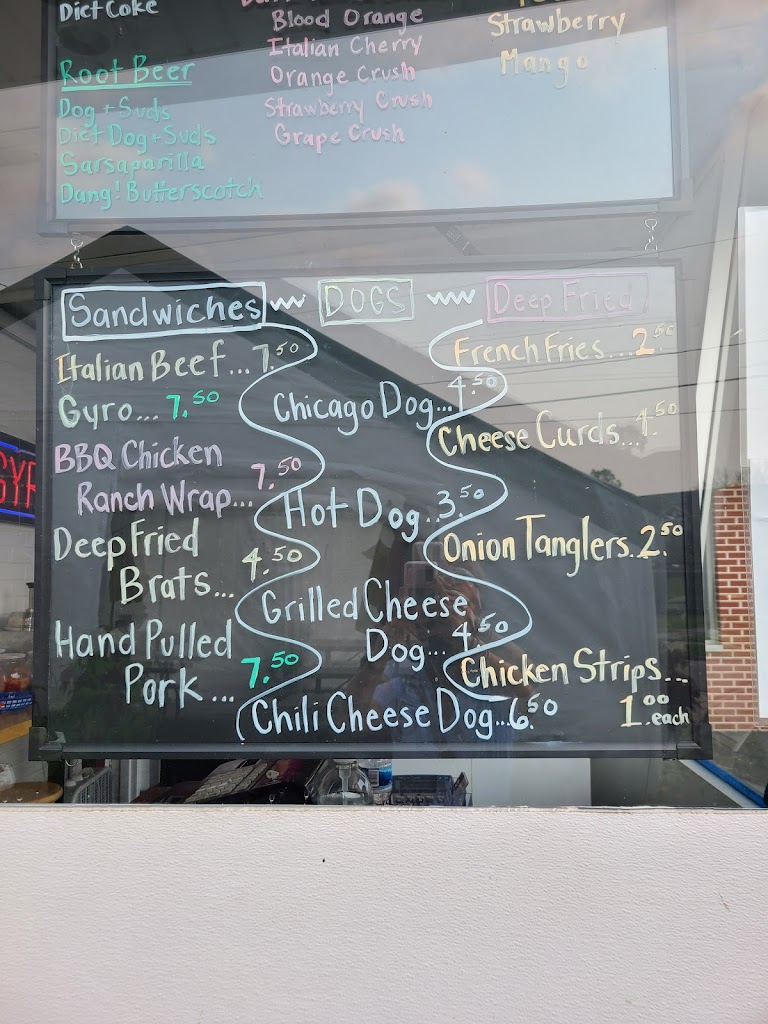 Diet Coke
Root Beer
Dog + Suds
Diet Dog + Suds
Sarsaparilla
Dang! Butterscotch
Blood Orange
Italian Cherry
Orange Crush
Strawberry Crush
Grape Crush
Strawberry
Mango
Sandwiches
Italian Beef...7.50
Gyro... 7.50
BBQ Chicken
Ranch Wrap... 7.50
Deep Fried
Brats... 4.50
Hand Pulled
Pork ... 7.50
DOGS
Chicago Dog... 4.50
Hot Dog..3.50
Grilled Cheese
Dog... 4.50
Chili Cheese Dog...6.50
Deep Fried
French Fries...2.50
Cheese Curds...4.50
Onion Tanglers.2.50
Chicken Strips...
1.00 each